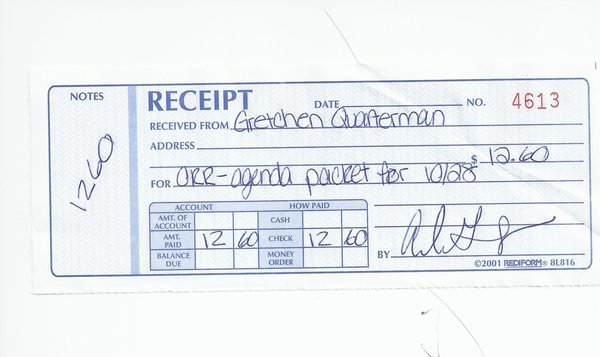 NOTES
1260
RECEIPT DATE NO. 4613
RECEIVED FROM Gretchen Quarterman
ADDRESS
$ 12.60
FOR ORR-agenda packet for 10/28
ACCOUNT HOW PAID
AMT. OF ACCOUNT CASH
AMT. PAID 12 60 CHECK 12 60
BALANCE DUE MONEY ORDER
BY
©2001 REDIFORM® 8L816